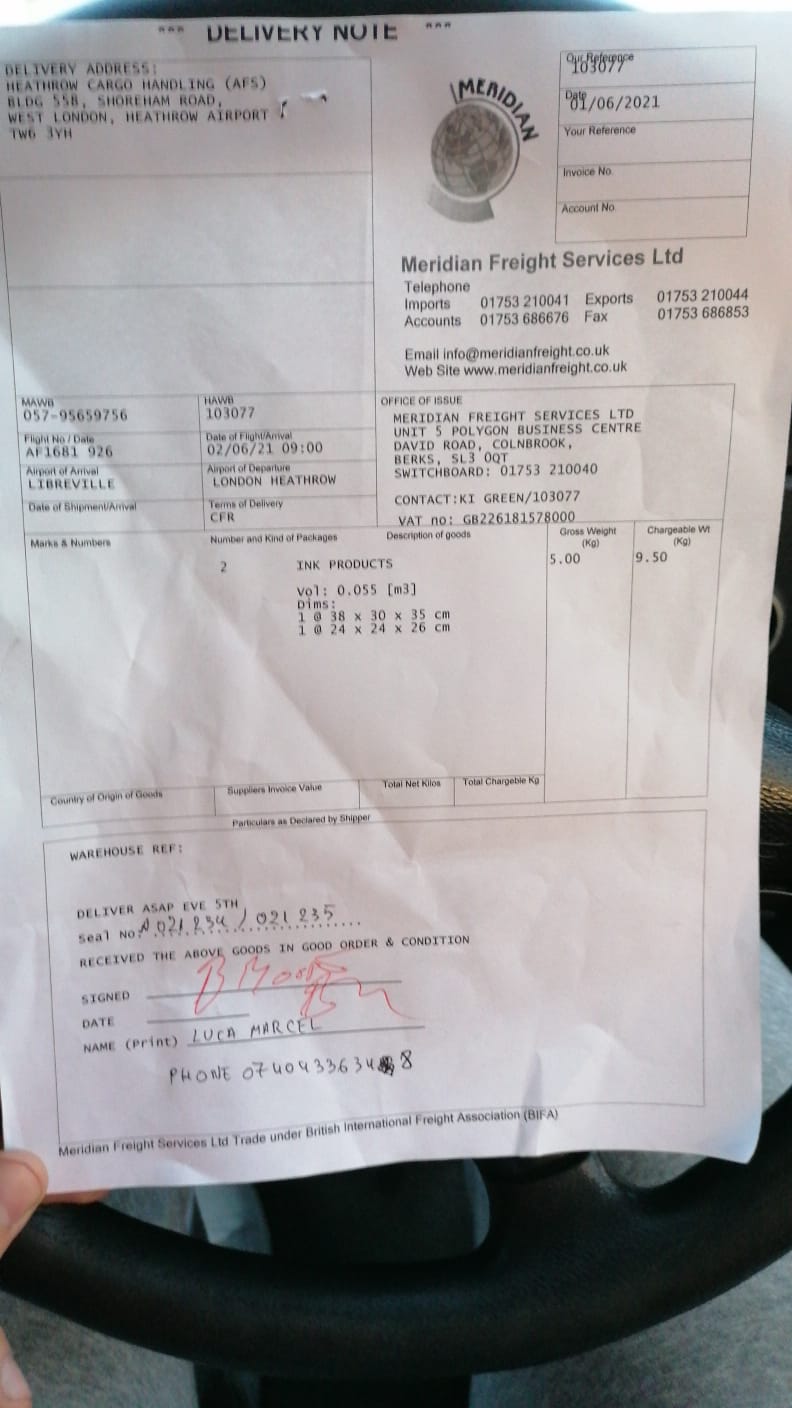 *** DELIVERY NOTE ***
DELIVERY ADDRESS:
HEATHROW CARGO HANDLING (AFS)
BLDG 558, SHOREHAM ROAD,
WEST LONDON, HEATHROW AIRPORT
TW6 3YH
MERIDIAN
Our Reference
103077
Date
01/06/2021
Your Reference
Invoice No.
Account No.
Meridian Freight Services Ltd
Telephone
Imports 01753 210041 Exports 01753 210044
Accounts 01753 686676 Fax 01753 686853
Email info@meridianfreight.co.uk
Web Site www.meridianfreight.co.uk
MAWB HAWB
057-95659756 103077
Flight No / Date Date of Flight/Arrival
AF1681 926 02/06/21 09:00
Airport of Arrival Airport of Departure
LIBREVILLE LONDON HEATHROW
Date of Shipment/Arrival Terms of Delivery
CFR
OFFICE OF ISSUE
MERIDIAN FREIGHT SERVICES LTD
UNIT 5 POLYGON BUSINESS CENTRE
DAVID ROAD, COLNBROOK,
BERKS, SL3 0QT
SWITCHBOARD: 01753 210040
CONTACT:KI GREEN/103077
VAT no: GB226181578000
Marks & Numbers Number and Kind of Packages Description of goods Gross Weight (Kg) Chargeable Wt (Kg)
2 INK PRODUCTS 5.00 9.50
Vol: 0.055 [m3]
Dims:
1 @ 38 x 30 x 35 cm
1 @ 24 x 24 x 26 cm
Country of Origin of Goods Suppliers Invoice Value Total Net Kilos Total Chargeble Kg
Particulars as Declared by Shipper
WAREHOUSE REF:
DELIVER ASAP EVE 5TH
Seal No: A021234 / 021235
RECEIVED THE ABOVE GOODS IN GOOD ORDER & CONDITION
SIGNED
DATE
NAME (Print) LUCA MARCEL
PHONE 0740433634 8
Meridian Freight Services Ltd Trade under British International Freight Association (BIFA)